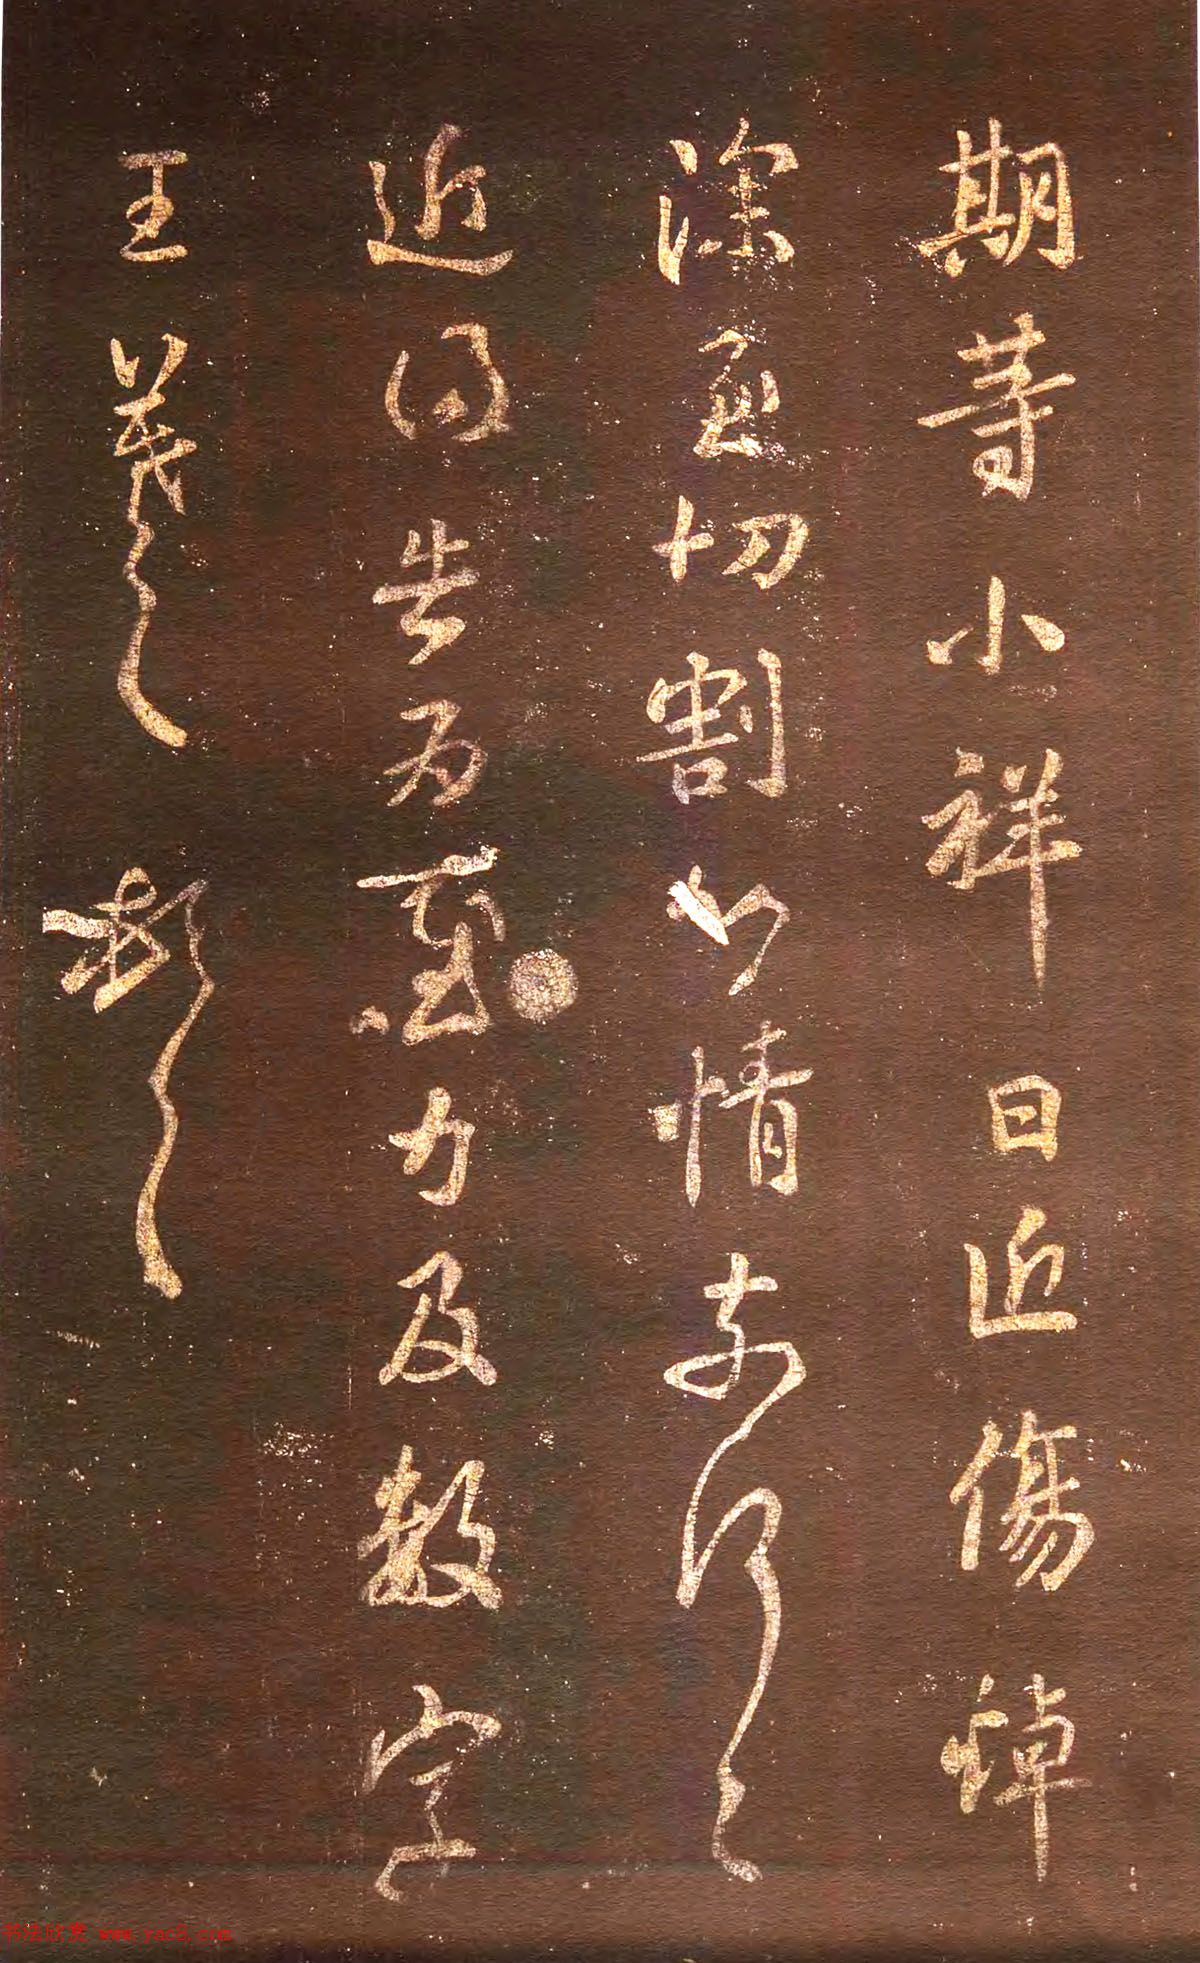 期等小祥日近傷悼
深至切割心情奈何奈何
近因告為慰力及數字
王羲之頓首
书法欣赏 www.yac8.com